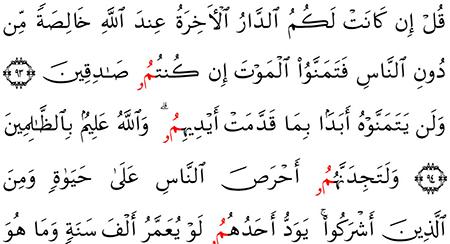 قُلْ إِن كَانَتْ لَكُمُ ٱلدَّارُ ٱلْأَخِرَةُ عِندَ ٱللَّهِ خَالِصَةً مِّن
دُونِ ٱلنَّاسِ فَتَمَنَّوُاْ ٱلْمَوْتَ إِن كُنتُمُۥ صَٰدِقِينَ ۝٩٣
وَلَن يَتَمَنَّوْهُ أَبَدَۢا بِمَا قَدَّمَتْ أَيْدِيهِمُۥ ۗ وَٱللَّهُ عَلِيمُۢ بِٱلظَّٰلِمِينَ
۝٩٤ وَلَتَجِدَنَّهُمُۥ أَحْرَصَ ٱلنَّاسِ عَلَىٰ حَيَوٰةٖ وَمِنَ
ٱلَّذِينَ أَشْرَكُواْ ۚ يَوَدُّ أَحَدُهُمُۥ لَوْ يُعَمَّرُ أَلْفَ سَنَةٖ وَمَا هُوَ